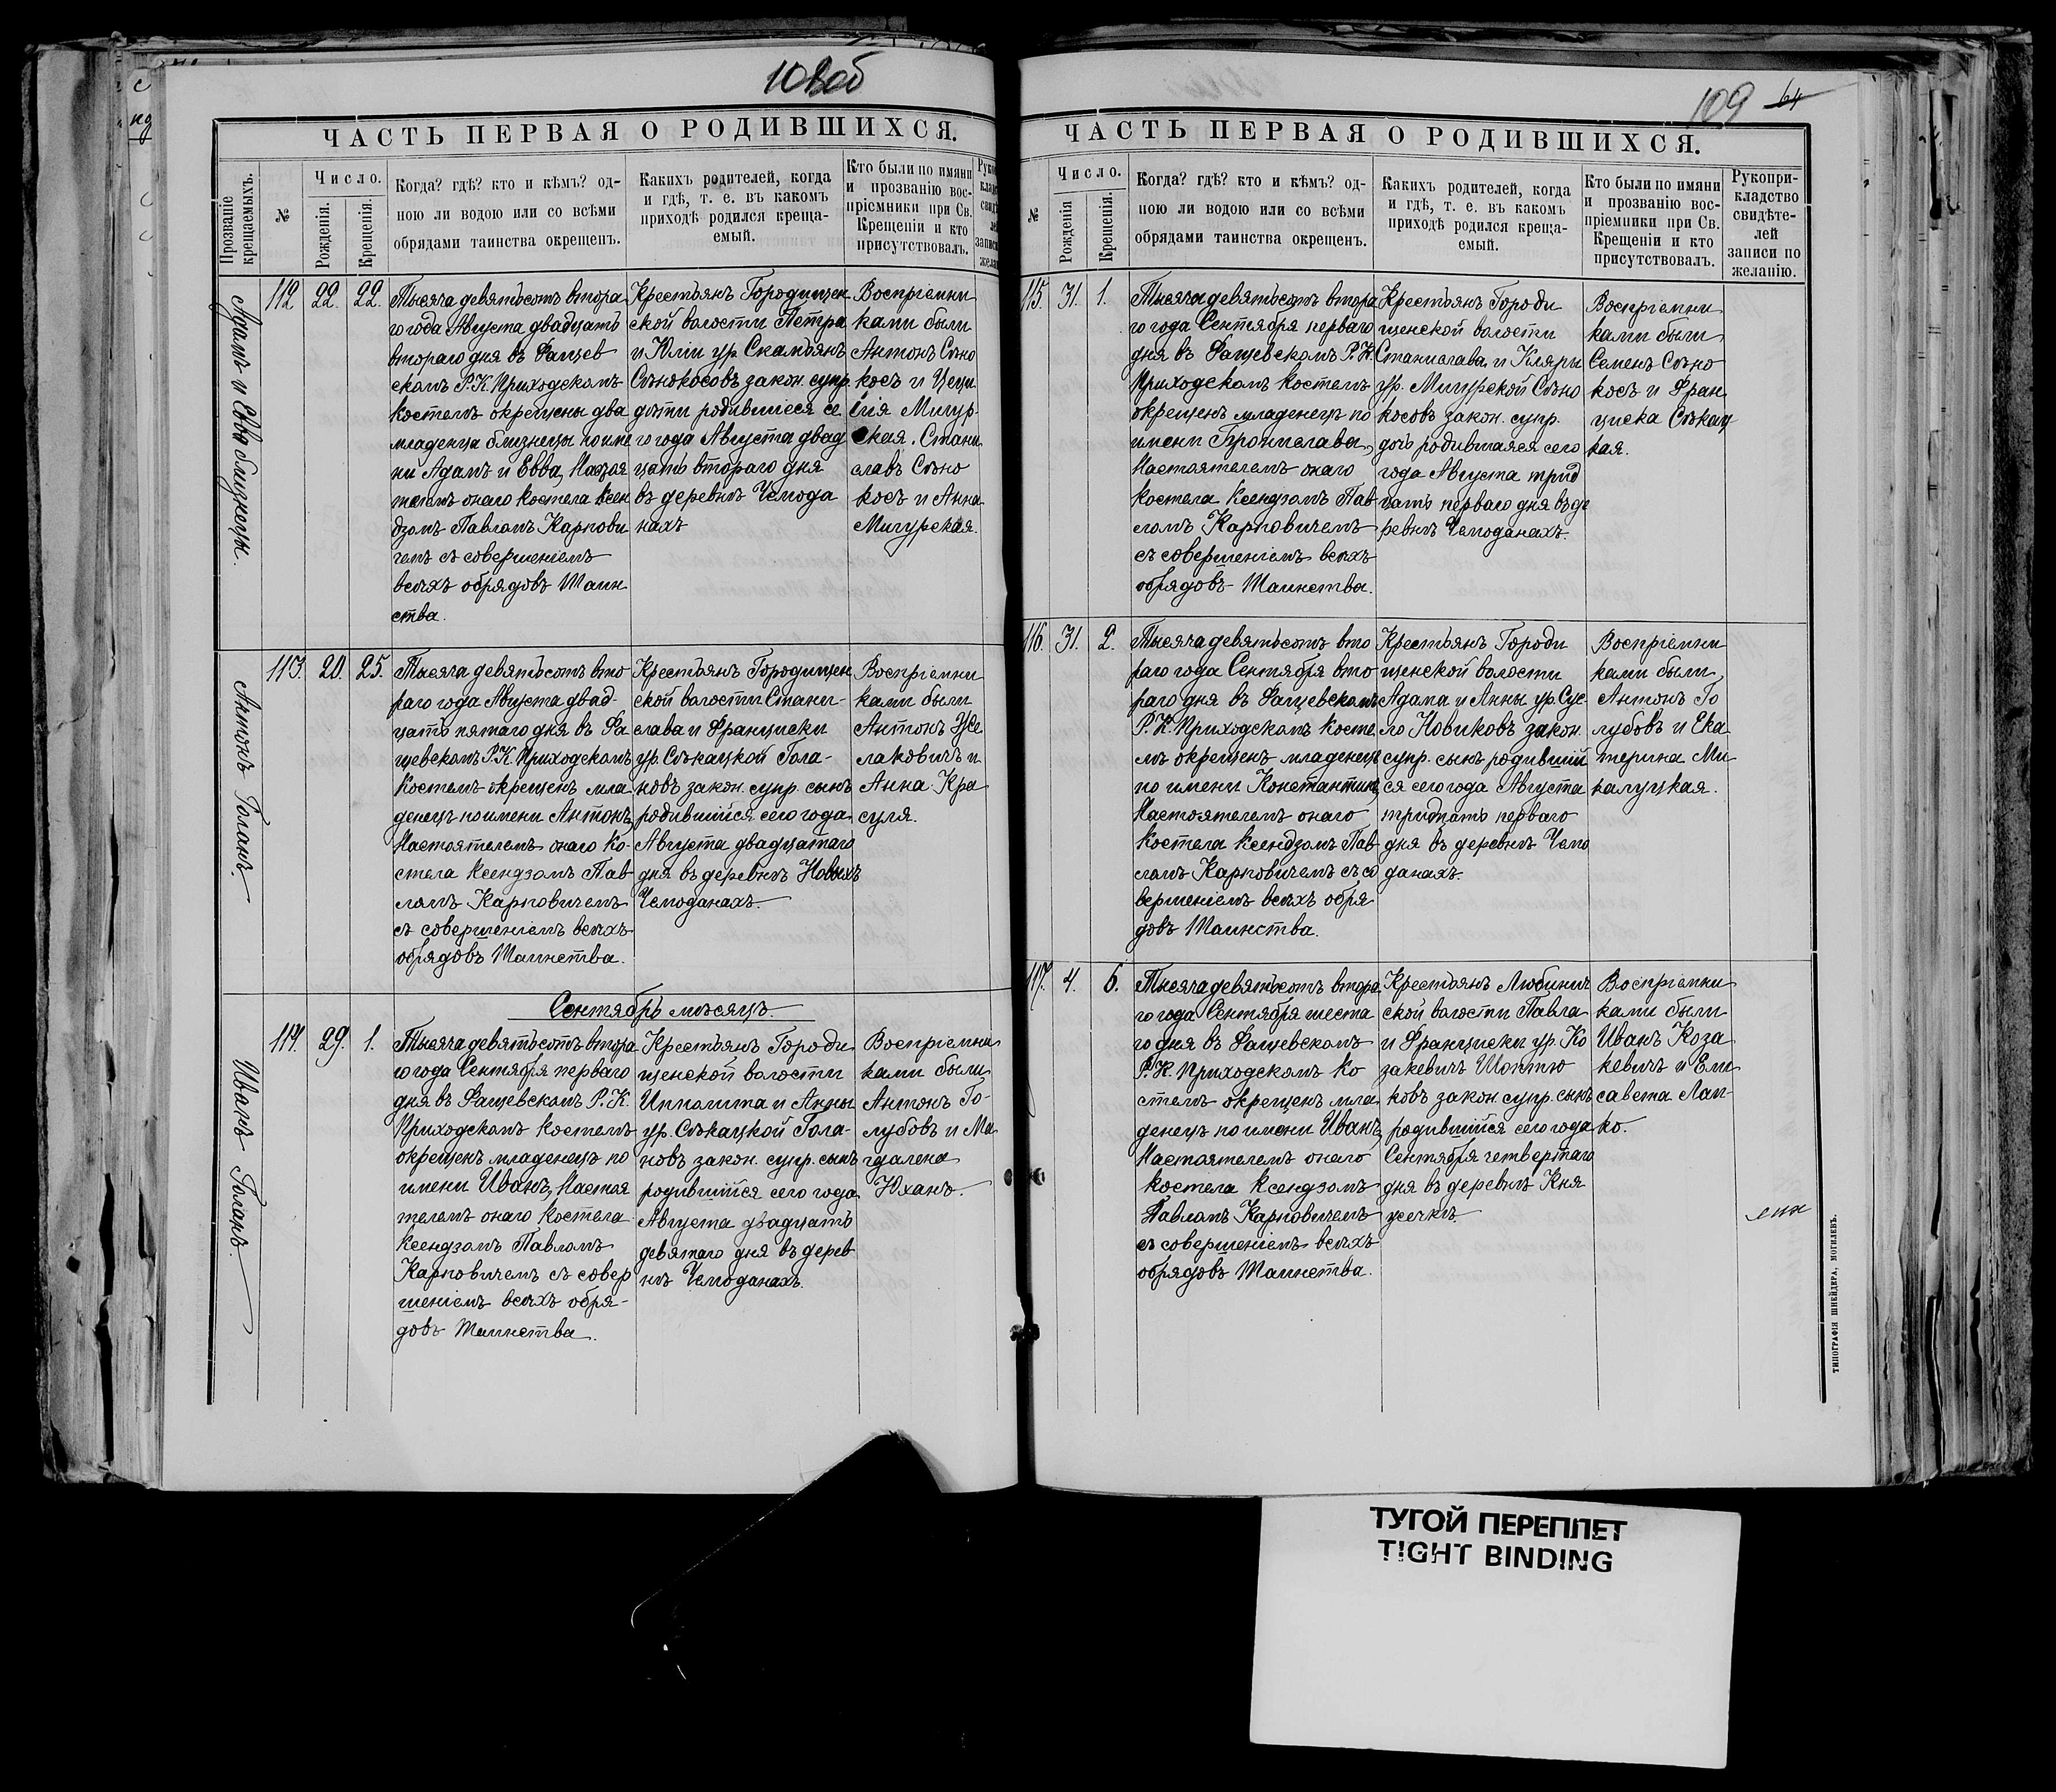 108об
ЧАСТЬ ПЕРВАЯ О РОДИВШИХСЯ.
Прозваніе крещаемыхъ.
№
Число.
Рожденія.
Крещенія.
Когда? гдѣ? кто и кѣмъ? од-
ною ли водою или со всѣми
обрядами таинства окрещенъ.
Какихъ родителей, когда
и гдѣ, т. е. въ какомъ
приходѣ родился креща-
емый.
Кто были по имяни
и прозванію вос-
пріемники при Св.
Крещеніи и кто
присутствовалъ.
Адамъ и Евва близнецы.
112 22. 22.
Тысяча девятьсотъ втора
го года Августа двадцать
втораго дня въ Фащев
скомъ Р.К. Приходскомъ
костелѣ окрещены два
младенца близнецы по име
ни Адамъ и Евва, Настоя
телемъ онаго костела Ксен
дзомъ Павломъ Карпови
чемъ съ совершеніемъ
всѣхъ обрядовъ Таин
ства.
Крестьянъ Городищен
ской волости Петра
и Юліи ур. Скамьянъ
Сѣнокосовъ закон. супр.
дѣти родившіеся се
го года Августа двад
цать втораго дня
въ деревнѣ Чемода
нахъ
Воспріемни
ками были
Антонъ Сѣно
косъ и Цеци
лія Мигур
ская. Стани
славъ Сѣно
косъ и Анна
Мигурская.
Антонъ Голанъ.
113. 20. 25.
Тысяча девятьсотъ вто
раго года Августа двад-
цать пятаго дня въ Фа
щевскомъ Р.К. Приходскомъ
Костелѣ окрещенъ мла
денецъ по имени Антонъ,
Настоятелемъ онаго Ко-
стела Ксендзомъ Пав
ломъ Карповичемъ
съ совершеніемъ всѣхъ
обрядовъ Таинства.
Крестьянъ Городищен
ской волости Стани-
слава и Франциски
ур. Сѣкацкой Гола-
новъ закон. супр. сынъ
родившійся сего года
Августа двадцатаго
дня въ деревнѣ Новыхъ
Чемоданахъ.
Воспріемни
ками были
Антонъ Же
лаковичъ и
Анна Кра
суля.
Сентябрь мѣсяцъ.
Иванъ Голанъ.
114. 29. 1.
Тысяча девятьсотъ втора
го года Сентября перваго
дня въ Фащевскомъ Р.К.
Приходскомъ костелѣ
окрещенъ младенецъ по
имени Иванъ, Настоя
телемъ онаго костела
Ксендзомъ Павломъ
Карповичемъ съ совер
шеніемъ всѣхъ обря-
довъ Таинства.
Крестьянъ Городи
щенской волости
Ипполита и Анны
ур. Сѣкацкой Гола-
новъ закон. супр. сынъ
родившійся сего года
Августа двадцать
девятаго дня въ дерев
нѣ Чемоданахъ.
Воспріемни
ками были
Антонъ Го-
лубовъ и Ма
гдалена
Юханъ.
109 64
ЧАСТЬ ПЕРВАЯ О РОДИВШИХСЯ.
№
Число.
Рожденія
Крещенія.
Когда? гдѣ? кто и кѣмъ? од-
ною ли водою или со всѣми
обрядами таинства окрещенъ.
Какихъ родителей, когда
и гдѣ, т. е. въ какомъ
приходѣ родился креща-
емый.
Кто были по имяни
и прозванію вос-
пріемники при Св.
Крещеніи и кто
присутствовалъ.
Рукопри-
кладство
свидѣте-
лей
записи по
желанію.
115. 31. 1.
Тысяча девятьсотъ втора
го года Сентября перваго
дня въ Фащевскомъ Р.К.
Приходскомъ костелѣ
окрещенъ младенецъ по
имени Бронислава,
Настоятелемъ онаго
Костела Ксендзомъ Пав
ломъ Карповичемъ
съ совершеніемъ всѣхъ
обрядовъ Таинства.
Крестьянъ Городи
щенской волости
Станислава и Кляры
ур. Мигурской Сѣно
косовъ закон. супр.
дочь родившаяся сего
года Августа трид
цать перваго дня въ де
ревнѣ Чемоданахъ.
Воспріемни
ками были
Семенъ Сѣно
косъ и Фран
циска Сѣкац
кая.
116. 31. 2.
Тысяча девятьсотъ вто
раго года Сентября вто
раго дня въ Фащевскомъ
Р.К. Приходскомъ косте
лѣ окрещенъ младенецъ
по имени Константинъ,
Настоятелемъ онаго
Костела Ксендзомъ Пав
ломъ Карповичемъ съ со
вершеніемъ всѣхъ обря
довъ Таинства.
Крестьянъ Городи
щенской волости
Адама и Анны ур. Сус-
ло Новиковъ закон.
супр. сынъ родивший
ся сего года Августа
тридцать перваго
дня въ деревнѣ Чемо
данахъ.
Воспріемни
ками были
Антонъ Го
лубовъ и Ека
терина Ми
калуцкая.
117. 4. 6.
Тысяча девятьсотъ втора
го года Сентября шеста
го дня въ Фащевскомъ
Р.К. Приходскомъ Ко
стелѣ окрещенъ мла
денецъ по имени Иванъ,
Настоятелемъ онаго
костела Ксендзомъ
Павломъ Карповичемъ
съ совершеніемъ всѣхъ
обрядовъ Таинства.
Крестьянъ Любинич
ской волости Павла
и Франциски ур. Ко
закевичъ Шоппо
ковъ закон. супр. сынъ
родившійся сего года
Сентября четвертаго
дня въ деревнѣ Кня
жечкѣ.
Воспріемни
ками были
Иванъ Коза
кевичъ и Ели
савета Лап-
ко.
ТИПОГРАФІЯ ШНЕЙДЕРА, МОГИЛЕВЪ.
ТУГОЙ ПЕРЕПЛЕТ
TIGHT BINDING